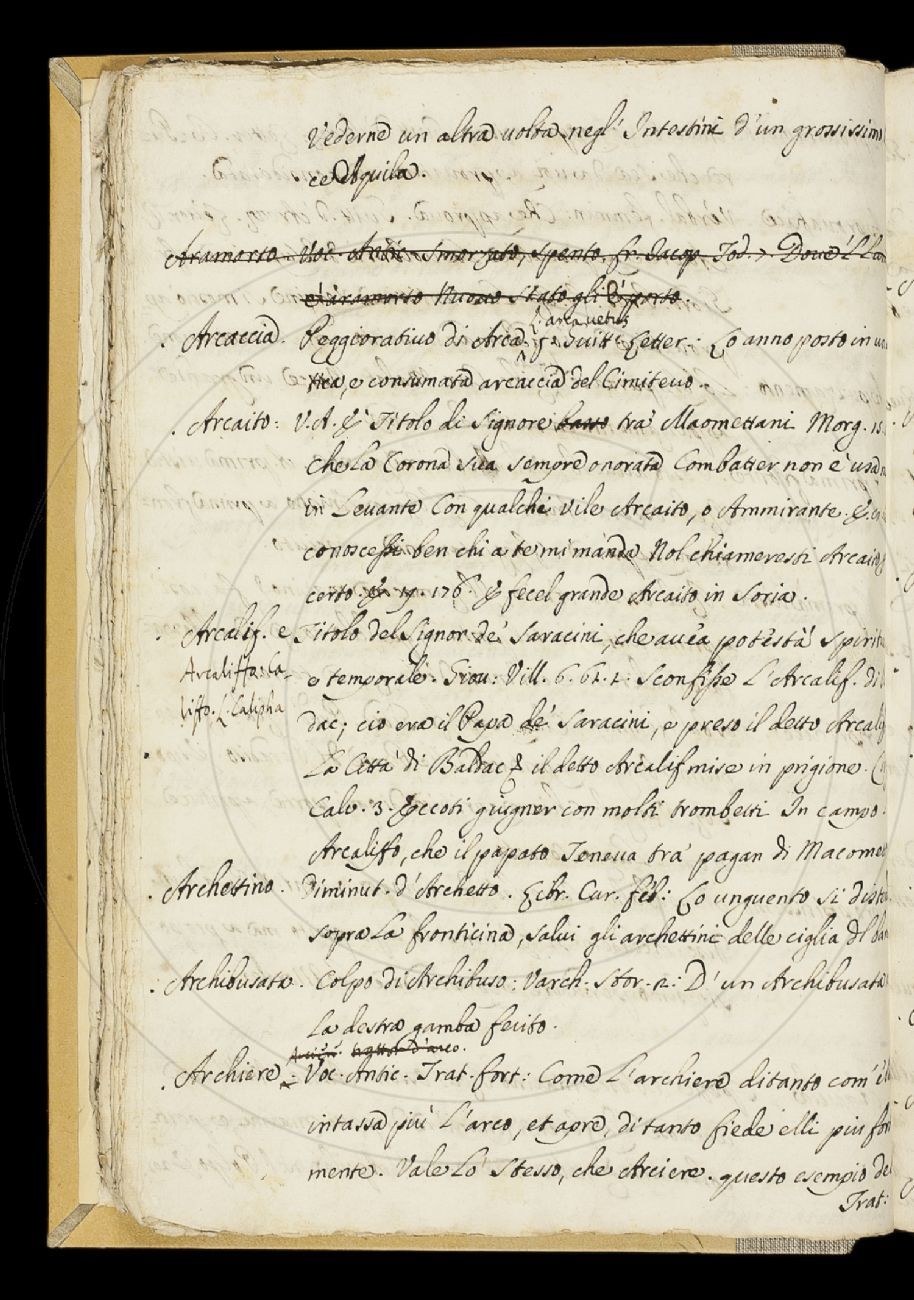 Vederne un altra volta negl' Intestini d'un grossissimo
ce Aquila.
Aramorto. Voc. Antic. Smorzato, Spento. fr. Jacop. Tod. Dove L'
è aramorto Nuovo Stato gli è porto.
L. arca vetus
Arcaccia. Peggiorativo di Arca. Letter.: Lo anno posto in
e consumata arcaccia del Cimiterio.
Arcaito: V. A. Titolo di Signore basso tra' Maomettani Morg. 15.
Che La Corona Sua sempre onorata Combatter non è
in Levante Con qualche vile Arcaito, o Ammirante.
conoscessi ben chi a te mi manda Nol chiameresti Arcaito
certo. 19. 176. fecel grande Arcaito in Soria.
Arcalif. e Titolo del Signor de' Saracini, che avea potestà
Arcaliffa: Ca-
e temporale. Giov: Vill. 6. 61. 1: Sconfisse L'Arcalif. di
liffo. L. Calipha
dac; cio era il Papa de' Saracini, e preso il detto
La Città di Baldac il detto Arcalif mise in prigione.
Calv. 3. Eccoti giugner con molti trombetti In campo
Arcalifo, che il papato Teneva tra' pagan di
Archettino. Diminut. d'Archetto. Libr. Cur. feb: Lo unguento si
sopra La fronticina, salvi gli archettini delle ciglia
Archibusata. Colpo di Archibuso: Varch. Stor. 2.: D'un Archibusata
La destra gamba ferito.
d'arco.
Archiere. Voc. Antic. Trat. fort: Come L'archiere di tanto com'
intassa più L'arco, et apre, di tanto fiede elli piu
mente. Vale Lo Stesso, che Arciere. questo esempio
Trat: